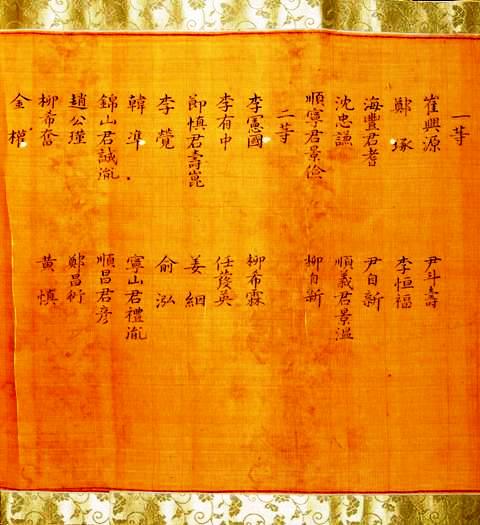 一等
崔興源 尹斗壽
鄭琢 李恒福
海豐君耆 尹自新
沈忠謙 順義君景溫
順寧君景儉 柳自新
二等
李憲國 柳希霖
李有中 任發英
即慎君壽崑 姜絪
李覺 俞泓
韓準 寧山君禮胤
錦山君誠胤 順昌君彦
趙公瑾 鄭昌衍
柳希奮 黃慎
金權